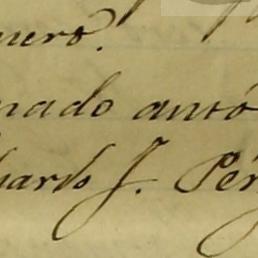 nero.
nado antó
hardo J. Pér